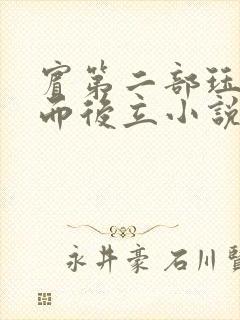 賓第二部珏
而後立小說
永井豪 石川賢